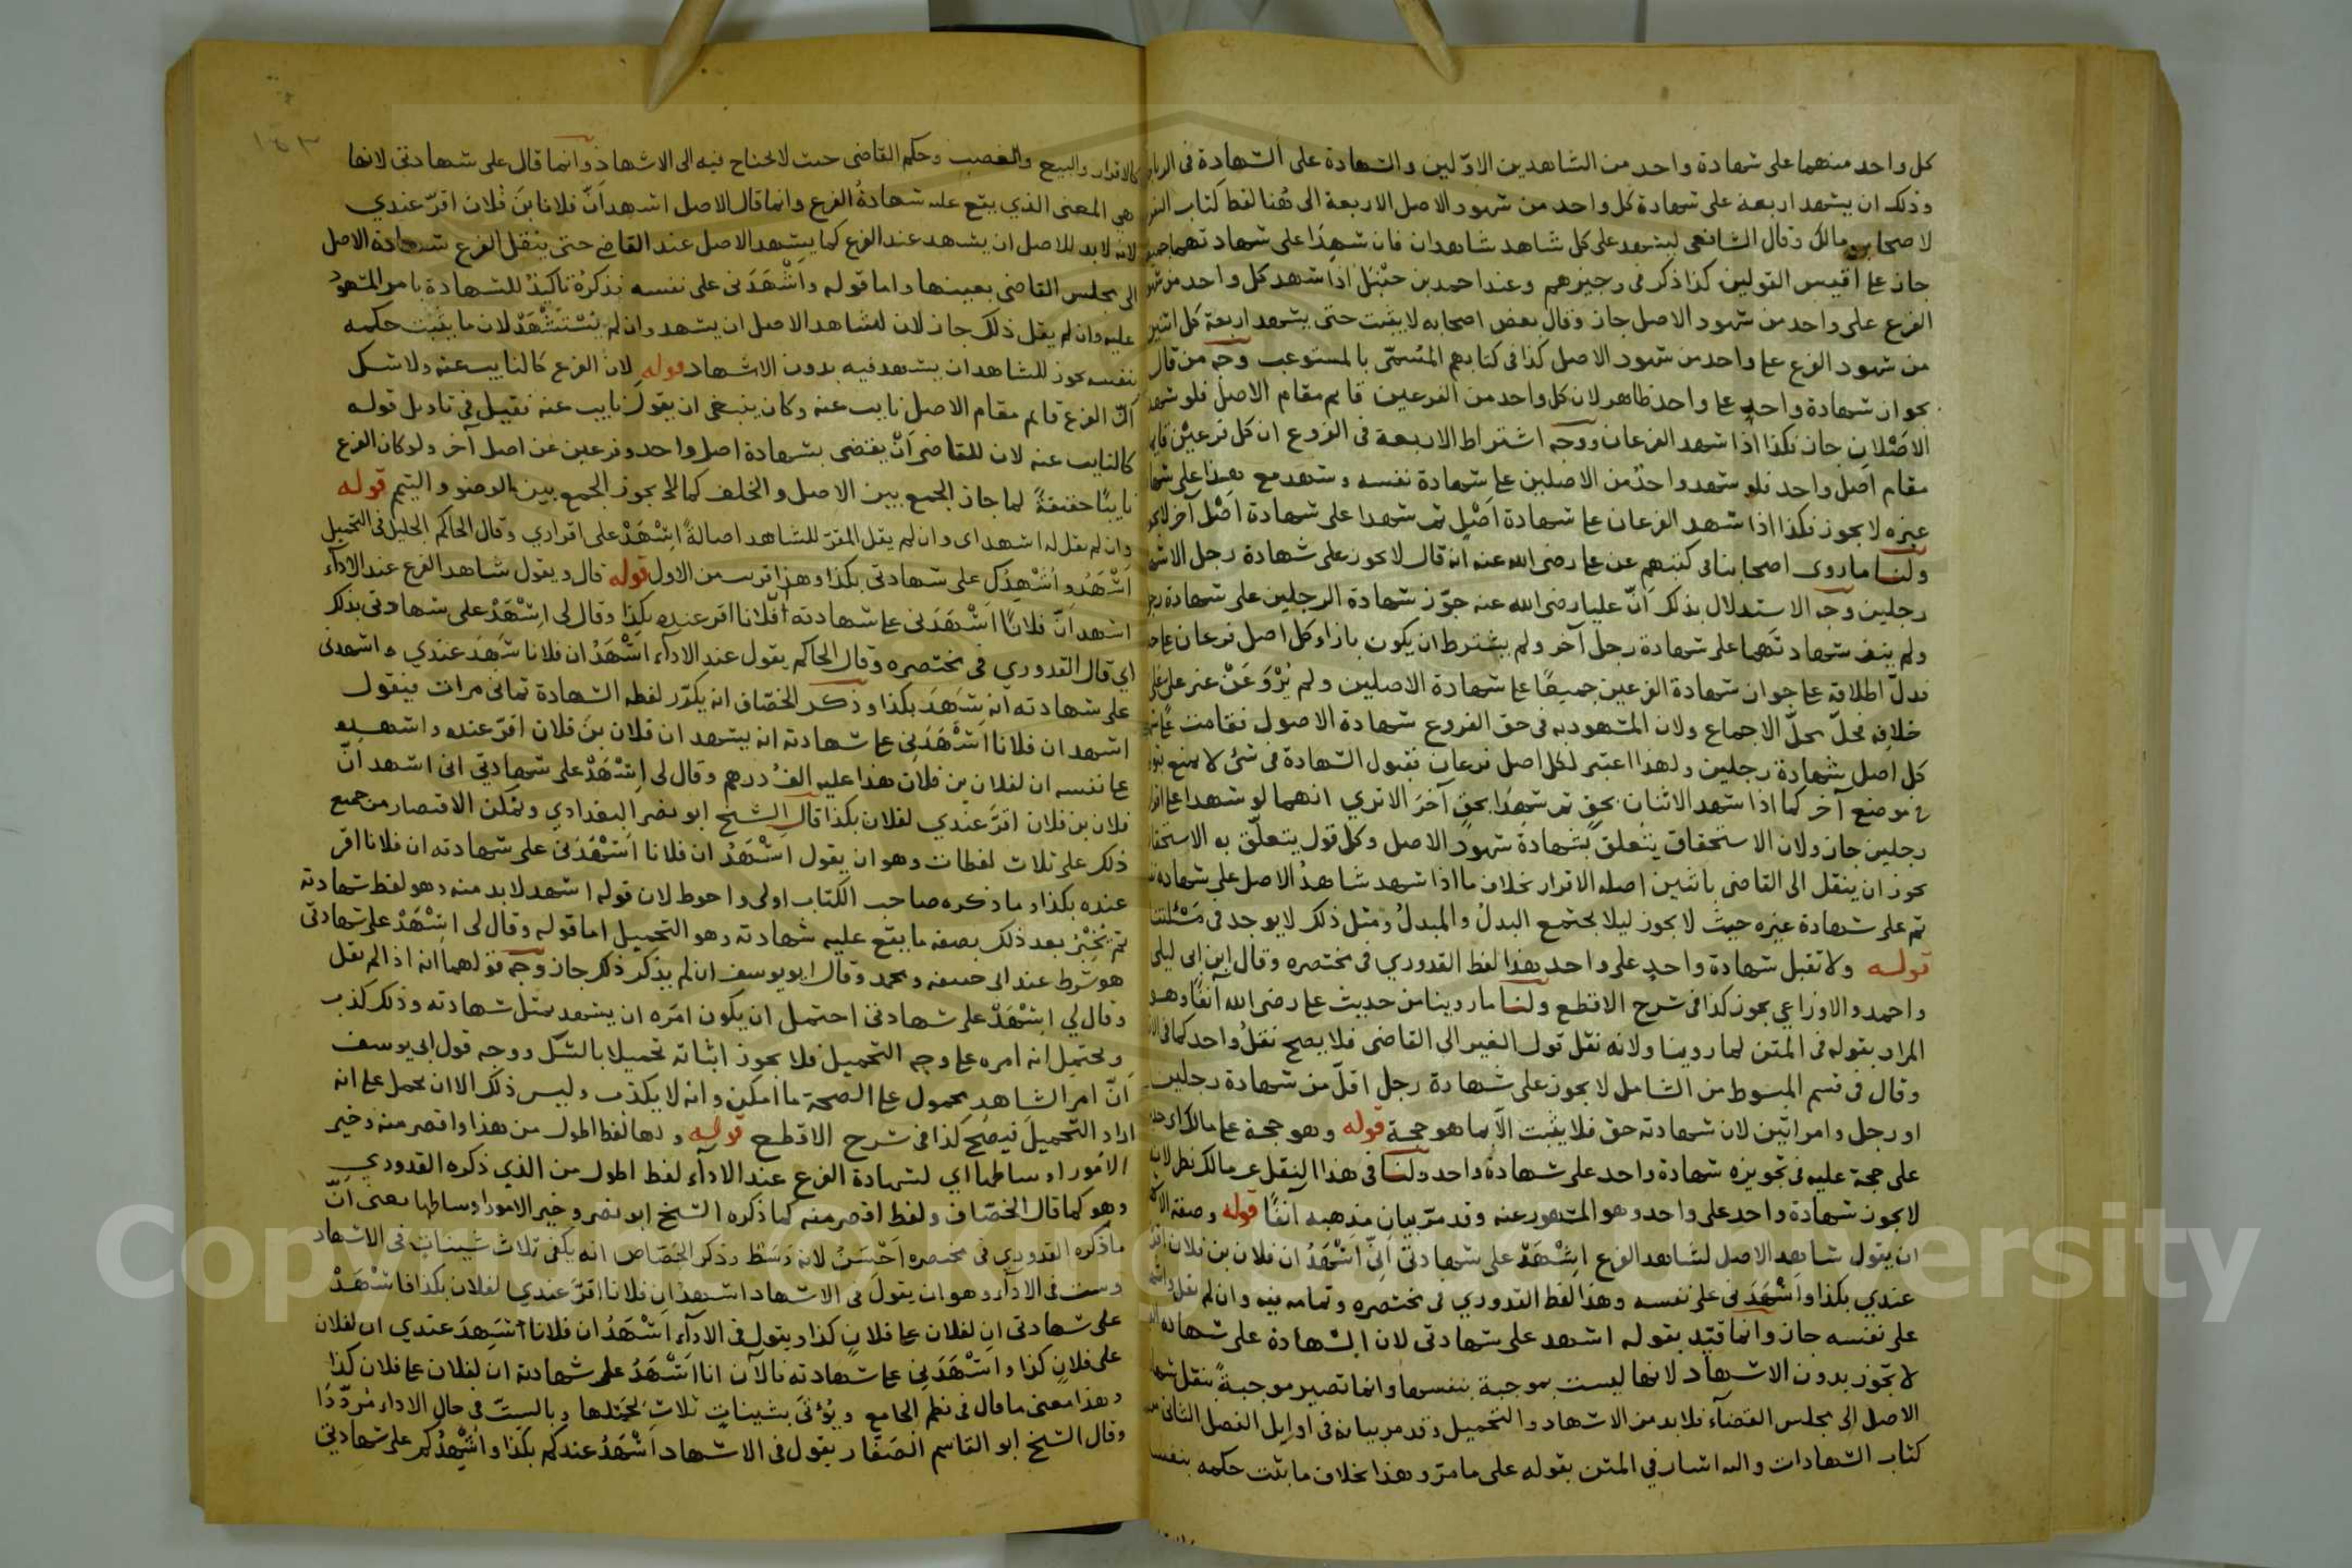 كل واحد منهما على شهادة واحد من الشاهدين الاولين والشهادة على الشهادة فى
وذلك ان يشهد اربعة على شهادة كل واحد من شهود الاصل الاربعة الى هُنا لفظ كتاب
لاصحاب مالك وقال الشافعى ليشهد على كل شاهد شاهدان فان شهدا على شهادتهما جميعا
جاز على أقيس القولين كذا ذكر فى وجيزهم وعند احمد بن حنبل اذا شهد كل واحد من شهود
الفرع على واحد من شهود الاصل جاز وقال بعض اصحابه لا يثبت حتى يشهد اربعة كل اثنين
من شهود الفرع على واحد من شهود الاصل كذا فى كتابهم المُسمّى بالمستوعب وجه من قال
بجواز شهادة واحدٍ على واحد ظاهر لان كل واحد من الفرعين قايم مقام الاصل فلو شهد
الاصْلان جاز فكذا اذا شهد الفرعان ووجه اشتراط الاربعة فى الفروع ان كل فرعيْن قايم
مقام اصل واحد فلو شهد واحدٌ من الاصلين على شهادة نفسه وشهد مع هذا على
غيره لا يجوز فكذا اذا شهد الفرعان على شهادة اَصْلٍ ثم شهدا على شهادة اَصْل آخر لا يجوز
ولنا ما روى اصحابنا فى كتبهم عن على رضى الله عنه انه قال لا يجوز على شهادة رجل الا شهادة
رجلين وجه الاستدلال بذلك اَنّ عليا رضى الله عنه جوّز شهادة الرجلين على شهادة رجل
ولم ينف شهادتَهما على شهادة رجل آخر ولم يشترط ان يكون بازاء كل اصل فرعان على حدة
فدلّ اطلاقه على جواز شهادة الفرعين جميعًا على شهادة الاصلين ولم يُرْوَ عَنْ غير على
خلافه فحلّ محلّ الاجماع ولان المشهود به فى حق الفروع شهادة الاصول فقامت على
كل اصل شهادة رجلين ولهذا اعتبر لكل اصل فرعان فقبول الشهادة فى شئ لا يمنع
فى موضع آخر كما اذا شهد الاثنان بحقٍ ثم شهدا بحقٍ آخرَ الا ترى انهما لو شهدا على اقرار
رجلين جاز ولان الاستحقاق يتعلق بشهادة شهود الاصل وكل قول يتعلّق به الاستحقاق
يجوز ان ينقل الى القاضى باثنين اصله الاقرار بخلاف ما اذا شهد شاهدُ الاصل على شهادة نفسه
ثم على شهادة غيره حيثُ لا يجوز ليلا يجتمع البدلُ والمبدلُ ومثل ذلك لا يوجد فى مَسْئلتنا
قوله ولا تقبل شهادة واحدٍ على واحد هذا لفظ القدورى فى مختصره وقال ابن ابى ليلى
واحمد والاوزاعى يجوز كذا فى شرح الاقطع ولنا ما روينا من حديث على رضى الله آنفًا وهو
المراد بقوله فى المتن لما روينا ولانه نقل قول الغير الى القاضى فلا يصح نقلُ واحد كما فى
وقال فى قسم المبسوط من الشامل لا يجوز على شهادة رجل اقلّ من شهادة رجلين
او رجل وامراتين لان شهادته حق فلا يثبت الّا بما هو حجة قوله وهو حجة على مالك اى
على حجة عليه فى تجويزه شهادة واحد على شهادة واحد ولنا فى هذا النقل عن مالك نظر لان
لا يجوز شهادة واحد على واحد وهو المشهور عنه وقد مرّ بيان مذهبه آنفًا قوله وصفة الاشهاد
ان يقول شاهد الاصل لشاهد الفرع اِشْهَدْ على شهادتى اَنِّى اَشْهَدُ ان فلان بن فلان اقر
عندى بكذا واَشْهَدَنى على نفسه وهذا لفظ القدورى فى مختصره وتمامه فيه وان لم يقل واشهدنى
على نفسه جاز وانما قيّد بقوله اشهد على شهادتى لان الشهادة على شهادة
لا تجوز بدون الاشهاد لانها ليست بموجبة بنفسها وانما تصير موجبةً بنقل شهادة
الاصل الى مجلس القضآء فلا بد من الاشهاد والتحميل وقد مر بيانه فى اوايل الفصل الثانى من
كتاب الشهادات واليه اشار فى المتن بقوله على ما مرّ وهذا بخلاف ما يثبت حكمه بنفسه
١٤٣
كالاقرار والبيع والغصب وحكم القاضى حيث لا يحتاج فيه الى الاشهاد وانما قال على شهادتى لانها
هى المعنى الذى يقع عليه شهادةُ الفرع وانما قال الاصل اشهد اَنّ فلانا بنَ فلان اقرّ عندى
لانه لا بد للاصل ان يشهد عند الفرع كما يشهد الاصل عند القاضى حتى ينقل الفرع شهادة الاصل
الى مجلس القاضى بعينها واما قوله واَشْهَدَنى على نفسه فذكرُهُ تاكيدٌ للشهادة بامر المشهود
عليه وان لم يقل ذلك جاز لان لمشاهد الاصل ان يشهد وان لم يُسْتَشْهَدْ لان ما يثبت حكمه
بنفسه يجوز للشاهد ان يشهد فيه بدون الاشهاد قوله لان الفرع كالنايب عنه ولا شك
اَنّ الفرع قايم مقام الاصل نايب عنه وكان ينبغى ان يقول نايب عنه فقيل فى تاويل قوله
كالنايب عنه لان للقاضى اَنْ يقضى بشهادة اصل واحد وفرعين عن اصل آخر ولو كان الفرع
نايبًا حقيقةً لما جاز الجمع بين الاصل والخلف كما لا يجوز الجمع بين الوضو والتيمم قوله
وان لم يقل له اشهد اى وان لم يقل المقرّ للشاهد اصالةً اِشْهَدْ على اقرارى وقال الحاكم الجليل فى التحميل
اَشْهَدُ واُشْهِدُك على شهادتى بكذا وهذا قريب من الاول قوله قال ويقول شاهد الفرع عند الادآء
اشهد اَنّ فلانًا اَشْهَدَنى على شهادته اَنّ فلانا اقر عنده بكذا وقال لى اِشْهَدْ على شهادتى بذلك
اى قال القدورى فى مختصره وقال الحاكم يقول عند الادآء اشْهَدُ ان فلانا شَهِدَ عندى واشهدنى
على شهادته انه شَهِدَ بكذا وذكر الخصّاف انه يكرّر لفظه الشهادة ثمانى مرات فيقول
اشهد ان فلانا اَشْهَدَنِى على شهادته انه يشهد ان فلان بنَ فلان اقرّ عنده واشهده
على نفسه ان لفلان بن فلان هذا عليه الفُ درهم وقال لى اِشْهَدْ على شهادتى انى اشهد اَنّ
فلان بن فلان اقرَّ عندى لفلان بكذا قال الشيخ ابو نصر البغدادى ويمكن الاقتصار من جميع
ذلك على ثلاث لفظات وهو ان يقول اَشْهَدُ ان فلانا اَشْهَدَنى على شهادته ان فلانا اقر
عنده بكذا وما ذكره صاحب الكتاب اولى واحوط لان قوله اشهد لا بد منه وهو لفظ شهادته
ثم يُخْبِرُ بعد ذلك بصفه ما يقع عليه شهادته وهو التحميل اما قوله وقال لى اِشْهَدْ على شهادتى
هو شرط عند ابى حنيفه ومحمد وقال ابو يوسف ان لم يذكر ذلك جاز وجه قولهما انه اذا لم يقل
وقال لى اِشْهَدْ على شهادتى احتمل ان يكون امَره ان يشهد بمثل شهادته وذلك كذب
ويحتمل انه امره على وجه التحميل فلا يجوز اثباته تحميلا بالشكّ ووجه قول ابى يوسف
اَنّ امرَ الشاهدِ محمول على الصحة ما امكن وانه لا يكذب وليس ذلك الا ان يحمل على انه
اراد التحميلَ فيصحّ كذا فى شرح الاقطع قوله ولها لفظ اطول من هذا واقصر منه وخير
الامُور اوساطها اى لشهادة الفرع عند الادآء لفظ اطول من الذى ذكره القدورى
وهو كما قال الخصّاف ولفظ اقصر منه كما ذكره الشيخ ابو نصر وخير الامور اوساطها يعنى اَنّ
ما ذكره القدورى فى مختصره اَحْسَنُ لانه وَسَط وذكر الجَصّاص انه يكفى ثلاث شينات فى الاشهاد
وست فى الادآء وهو ان يقول فى الاشهاد اشهدُ ان فلانا اقرَّ عندى لفلان بكذا فاشْهَدْ
على شهادتى ان لفلان على فلان كذا ويقول فى الادآء اَشْهَدُ ان فلانا شَهِدَ عندى ان لفلان
على فلان كذا واَشْهَدَنى على شهادته فالآن انا اَشْهَدُ على شهادته ان لفلان على فلان كذا
وهذا معنى ما قال فى نظم الجامع ويُؤتى بشيناتٍ ثلاثٍ وبالستّ فى حال الاداء مُردّدَا
وقال الشيخ ابو القاسم الصَفّار يقول فى الاشهاد اَشْهَدُ عندكم بكذا واُشْهِدُكم على شهادتى
Copyright © King Saud University